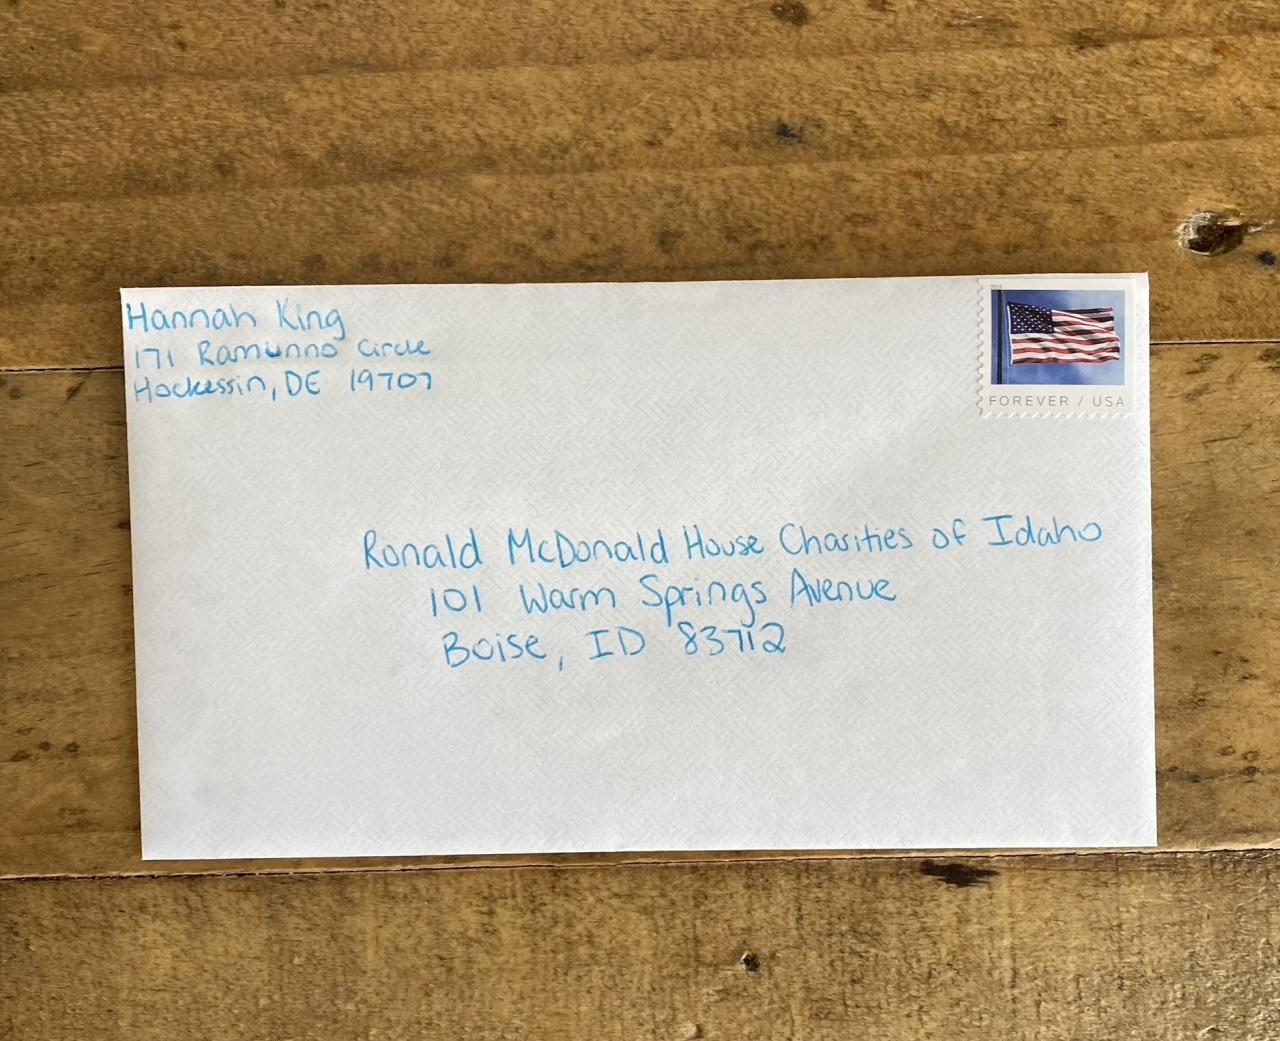 Hannah King
171 Ramunno Circle
Hockessin, DE 19707
FOREVER / USA
Ronald McDonald House Charities of Idaho
101 Warm Springs Avenue
Boise, ID 83712